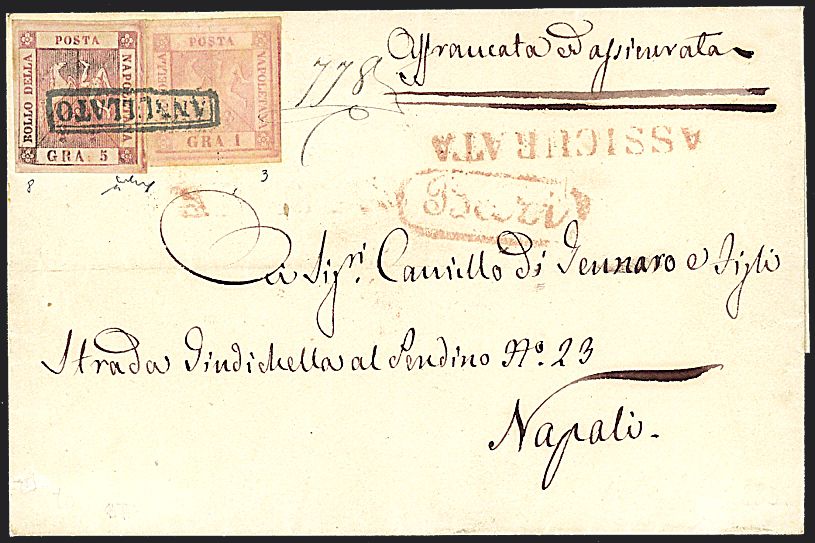 POSTA
BOLLO DELLA
NAPOLETANA
GRA. 5
POSTA
BOLLO DELLA
NAPOLETANA
GRA 1
ANNULLATO
778
Affrancata ed assicurata
ASSICURATA
Bari
8
3
Ai Sigri. Camillo di Gennaro e Figli
Strada Giudichella al Pendino No. 23
Napoli.